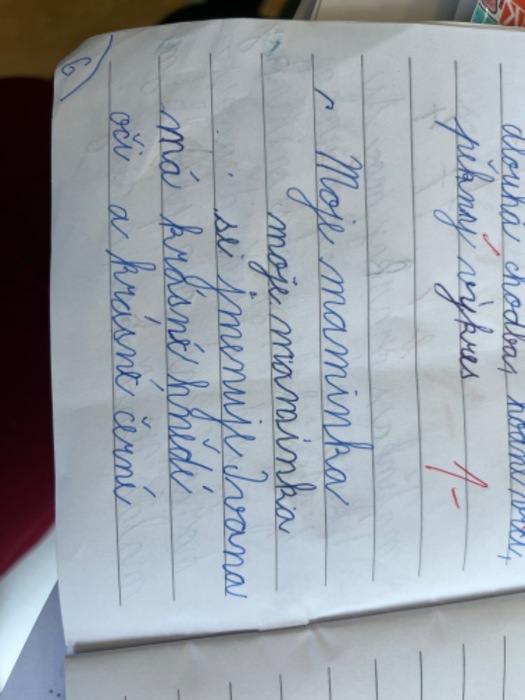 dlouhá chodba,
pěkný výkres
1-
Moje maminka
moje maminka
se jmenuje Ivana
má krásné hnědé
oči a krásné černé
6